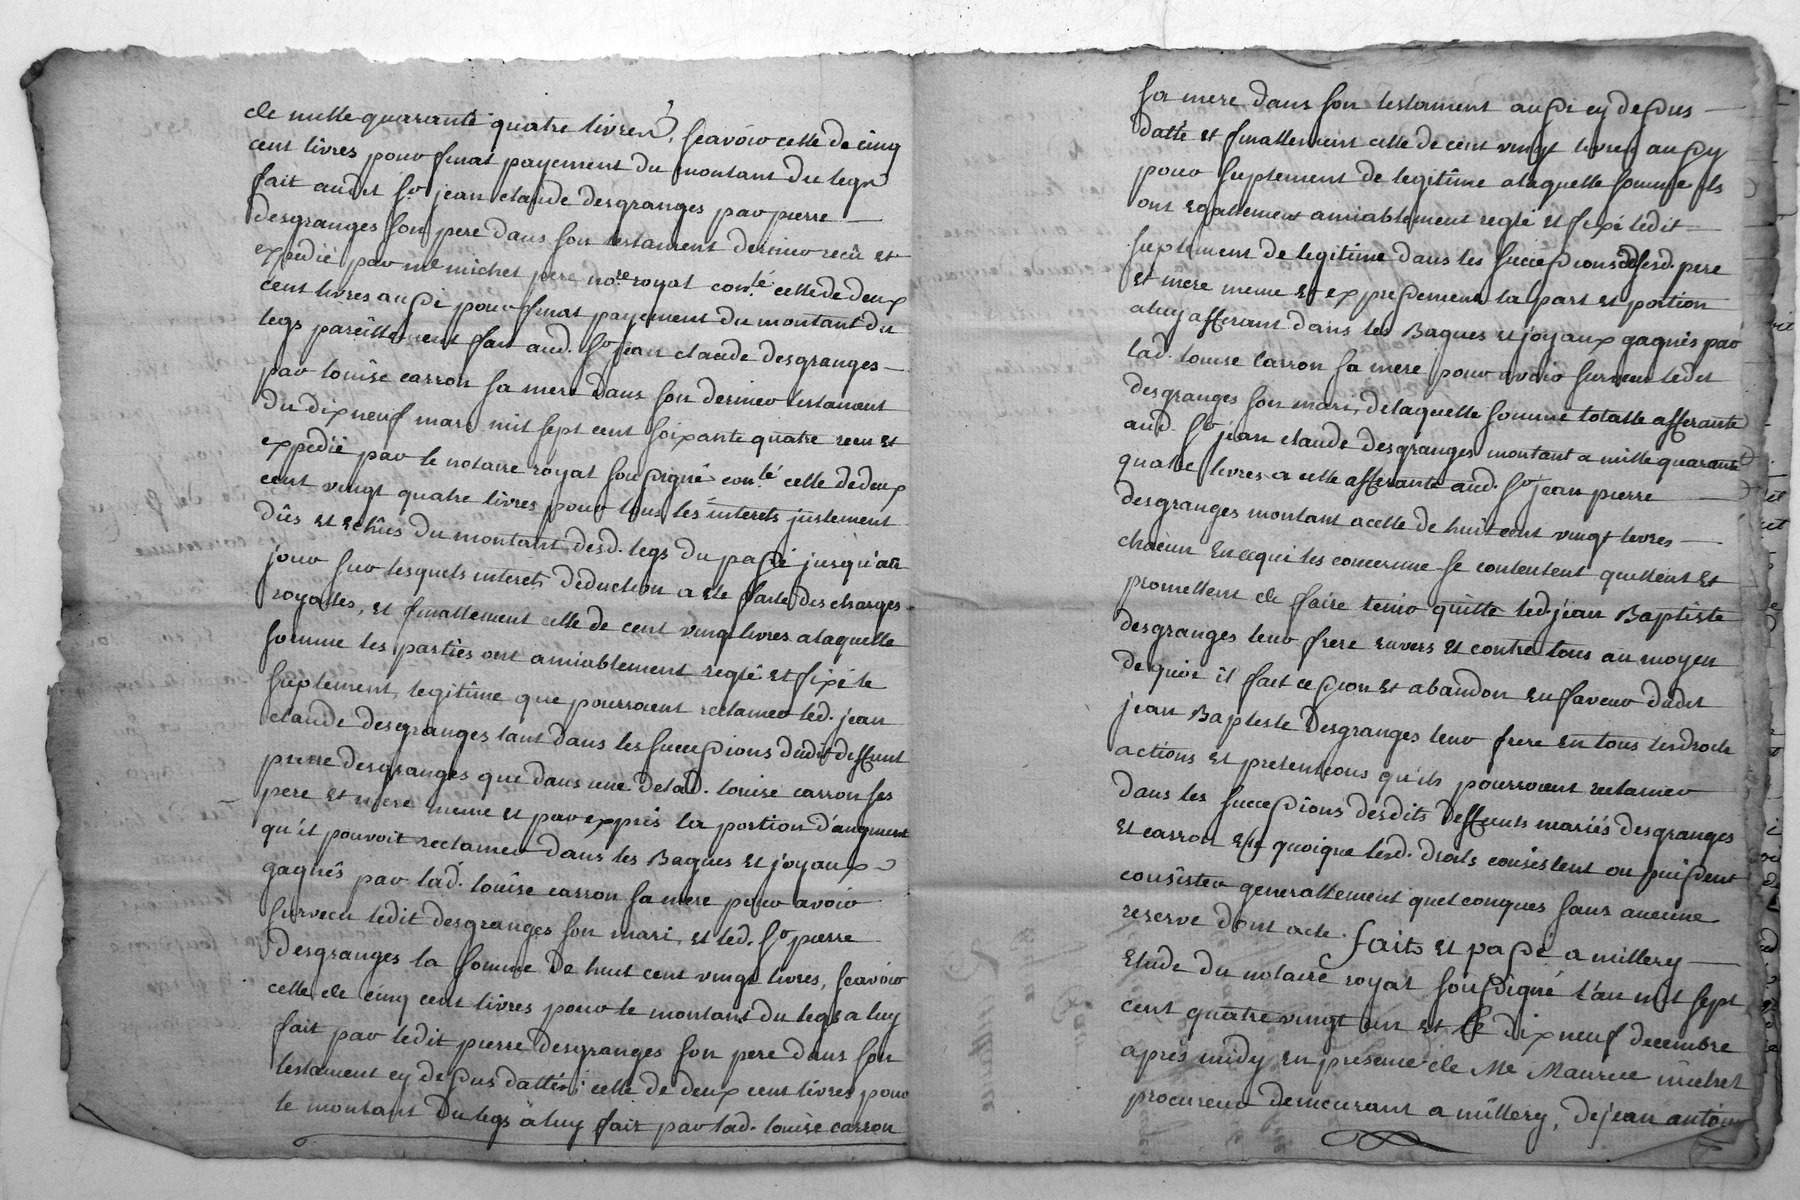 de mille quarante quatre livres, scavoir celle de cinq
cent livres pour final payement du montant du legs
fait audit Sr. jean claude desgranges par pierre —
desgranges son pere dans son testament dernier recû et
expedié par me michel pere nore. royal con.té celle de deux
cent livres aussi pour final payement du montant du
legs pareillement fait aud. Sr jean claude desgranges —
par loüise carron sa mere dans son dernier testament
du dix neuf mars mil sept cent soixante quatre recu et
expedié par le notaire royal soussigné con.té celle de deux
cent vingt quatre livres pour tous les interets justement
dûs et echûs du montant desd. legs du passé jusqu'a ce
jour sur lesquels interets deduction a ete faite des charges
royalles, et finallement celle de cent vingt livres a laquelle
somme les parties ont amiablement reglé et fixé le
suplement, legitime que pourroient reclamer led. jean
claude desgranges tant dans les successions dudit deffunt
pierre desgranges que dans une de lad. louise carron ses
pere et mere meme et par exprés la portion d'augment
qu'il pouvoit reclamer dans les Bagues et joyaux
gagnés par lad. loüise carron sa mere pour avoir
survecu ledit desgranges son mari, et led. Sr pierre
desgranges la somme de huit cent vingt livres, scavoir
celle de cinq cent livres pour le montant du legs a luy
fait par ledit pierre desgranges son pere dans son
testament cy dessus datté; celle de deux cent livres pour
le montant du legs a luy fait par lad. loüise carron
sa mere dans son testament aussi cy dessus —
datté et finallement celle de cent vingt livres aussy
pour suplement de legitime a laquelle somme ils
ont egallement amiablement reglé et fixé ledit —
suplement de legitime dans les successions desd. pere
et mere meme et expressement la part et portion
a luy afferant dans les Bagues et joyaux gagnés par
lad. louise carron sa mere pour avoir survecu ledit
desgranges son mari, de laquelle somme totalle afferante
aud. Sr jean claude desgranges montant a mille quarante
quatre livres a celle afferante aud. Sr jean pierre —
desgranges montant a celle de huit cent vingt livres —
chacun en ce qui les concerne se contentent quittent et
promettent de faire tenir quitte led. jean Baptiste
desgranges leur frere envers et contre tous au moyen
de quoi il fait cession et abandon en faveur dudit
jean Baptiste desgranges leur frere en tous les droits
actions et pretentions qu'ils pourroient reclamer
dans les successions desdits deffunts mariés desgranges
et carron quoique lesd. droits consistent ou puissent
consister generallement quelconques sans aucune
reserve dont acte. faits et passé a millery —
etude du notaire royal soussigné l'an mil sept
cent quatre vingt un et le dix neuf decembre
aprés midy en presence de Me Maurice michel
procureur demeurant a millery, de jean antoine